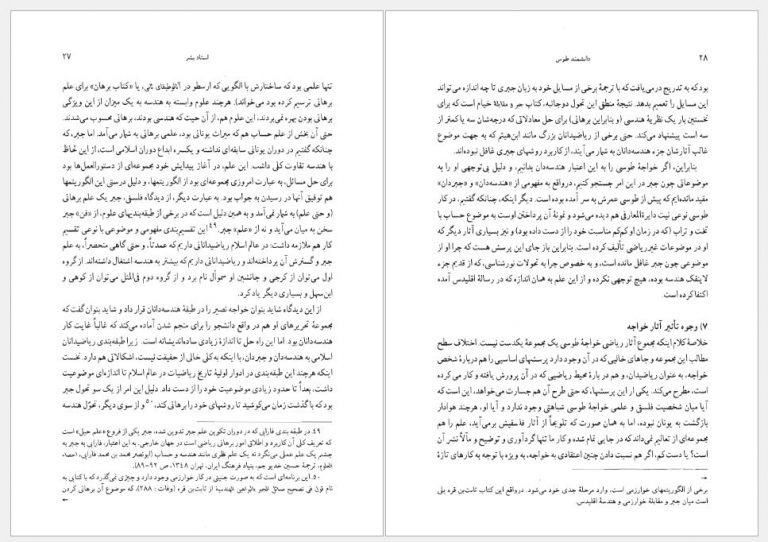 ۲۷
استاد بشر
تنها علمی بود که ساختارش با الگویی که ارسطو در آنالوطیقای ثانی، یا «کتاب برهان» برای علم
برهانی ترسیم کرده بود می‌خواند). هرچند علوم وابسته به هندسه به یک میزان از این ویژگی
برهانی بودن بهره نمی‌بردند، این علوم هم، از آن حیث که هندسی بودند، برهانی محسوب می‌شدند.
حتی آن بخش از علم حساب هم که میراث یونانی بود، علمی برهانی به شمار می‌آمد. اما جبر، که
چنانکه گفتیم در دوران یونانی سابقه‌ای نداشته و یکسره ابداع دوران اسلامی است، از این لحاظ
با هندسه تفاوت کلی داشت. این علم، در آغاز پیدایش خود مجموعه‌ای از دستورالعمل‌ها بود
برای حل مسائل، به عبارت امروزی مجموعه‌ای بود از الگوریتمها، و دلیل درستی این الگوریتمها
هم توفیق آنها در رسیدن به جواب بود. به عبارت دیگر، از دیدگاه فلسفی، جبر یک علم برهانی
(و حتی علم) به شمار نمی‌آمد و به همین دلیل است که در برخی از طبقه‌بندیهای علوم، از «فن» جبر
سخن به میان می‌آید و نه از «علم» جبر.۴۹ این تقسیم‌بندی مفهومی و موضوعی با نوعی تقسیم
کار هم ملازمه داشت: در عالم اسلام ریاضیدانانی داریم که عمدتاً، و حتی گاهی منحصراً، به علم
جبر و گسترش آن پرداخته‌اند و ریاضیدانانی داریم که بیشتر به هندسه اشتغال داشته‌اند. از گروه
اول می‌توان از کرجی و جانشین او سموأل نام برد و از گروه دوم فی‌المثل می‌توان از کوهی و
ابن‌سهل و بسیاری دیگر یاد کرد.
از این دیدگاه شاید بتوان خواجه نصیر را در طبقهٔ هندسه‌دانان قرار داد و شاید بتوان گفت که
مجموعهٔ تحریرهای او هم در واقع دانشجو را برای منجم شدن آماده می‌کند که غالباً غایت کار
هندسه‌دانان بود. اما این راه حل تا اندازهٔ زیادی ساده‌اندیشانه است. زیرا طبقه‌بندی ریاضیدانان
اسلامی به هندسه‌دان و جبردان، با اینکه به کلی خالی از حقیقت نیست، اشکالاتی هم دارد. نخست
اینکه هرچند این طبقه‌بندی در ادوار اولیهٔ تاریخ ریاضیات در عالم اسلام تا اندازه‌ای موضوعیت
داشت، بعداً تا حدود زیادی موضوعیت خود را از دست داد. دلیل این امر از یک سو تحول جبر
بود که با گذشت زمان می‌کوشید تا روشهای خود را برهانی کند،۵۰ و از سوی دیگر، تحوّل هندسه
۴۹. در طبقه بندی فارابی که در دوران تکوین علم جبر تدوین شده، جبر یکی از فروع «علم حیل» است
که تعریف کلی آن کاربرد و اطلاق امور برهانی ریاضی است در جهان خارجی. به این اعتبار، فارابی به جبر به
چشم یک علم عملی می‌نگرد نه یک علم نظری مانند هندسه و حساب (ابونصر محمد بن محمد فارابی، احصاء
العلوم، ترجمهٔ حسین خدیو جم، بنیاد فرهنگ ایران، تهران ۱۳۴۸، ص ۹۲–۸۹).
۵۰. این برنامه‌ای است که به صورت جنینی در کار خوارزمی وجود دارد و چیزی نمی‌گذرد که با کتابی به
نام قول فی تصحیح مسائل الجبر بالبراهین الهندسیه از ثابت‌بن قره (وفات: ۲۸۸)، که موضوع آن برهانی کردن
←
دانشمند طوس
۲۸
بود که به تدریج درمی‌یافت که با ترجمهٔ برخی از مسایل خود به زبان جبری تا چه اندازه می‌تواند
این مسایل را تعمیم بدهد. نتیجهٔ منطقی این تحول دوجانبه، کتاب جبر و مقابلهٔ خیام است که برای
نخستین بار یک نظریهٔ هندسی (و بنابراین برهانی) برای حل معادلاتی که درجه‌شان سه یا کمتر از
سه است پیشنهاد می‌کند. حتی برخی از ریاضیدانان بزرگ مانند ابن‌هیثم که به جهت موضوع
غالب آثارشان جزء هندسه‌دانان به شمار می‌آیند، از کاربرد روشهای جبری غافل نبوده‌اند.
بنابراین، اگر خواجهٔ طوسی را به این اعتبار هندسه‌دان بدانیم، و دلیل بی‌توجهی او را به
موضوعاتی چون جبر در این امر جستجو کنیم، در واقع به مفهومی از «هندسه‌دان» و «جبردان»
مقید مانده‌ایم که پیش از طوسی عمرش به سر آمده بوده است. دیگر اینکه، چنانکه گفتیم، در کار
طوسی نوعی نیت دایرة‌المعارفی هم دیده می‌شود و نمونهٔ آن پرداختن اوست به موضوع حساب با
تخت و تراب (که در زمان او کم‌کم مناسبت خود را از دست داده بود) و نیز بسیاری آثار دیگر که
او در موضوعات غیرریاضی تألیف کرده است. بنابراین باز جای این پرسش هست که چرا او از
موضوعی چون جبر غافل مانده است، و به خصوص چرا به تحولات نورشناسی، که از قدیم جزء
لاینفک هندسه بوده، هیچ توجهی نکرده و از این علم به همان اندازه که در رسالهٔ اقلیدس آمده
اکتفا کرده است.
۷) وجوه تأثیر آثار خواجه
خلاصهٔ کلام اینکه مجموع آثار ریاضی خواجهٔ طوسی یک مجموعهٔ یکدست نیست. اختلاف سطح
مطالب این مجموعه و جاهای خالیی که در آن وجود دارد پرسشهای اساسیی را هم دربارهٔ شخص
خواجه، به عنوان ریاضیدان، و هم در بارهٔ محیط ریاضیی که در آن پرورش یافته و کار می‌کرده
است، مطرح می‌کند. یکی از این پرسشها، که حتی طرح آن هم جسارت می‌خواهد، این است که
آیا میان شخصیت فلسفی و علمی خواجهٔ طوسی شباهتی وجود ندارد و آیا او، هرچند هوادار
بازگشت به یونان نبوده، اما به همان صورت که تلویحاً از آثار فلسفیش برمی‌آید، علم را هم
مجموعه‌ای از تعالیم نمی‌داند که در جایی تمام شده و کار ما تنها گردآوری و توضیح و مآلاً نشر آن
است؟ یا دست کم، اگر هم نسبت دادن چنین اعتقادی به خواجه، به ویژه با توجه به کارهای تازهٔ
→
برخی از الگوریتمهای خوارزمی است، وارد مرحلهٔ جدی خود می‌شود. درواقع این کتاب ثابت‌بن قره پلی
است میان جبر و مقابلهٔ خوارزمی و هندسهٔ اقلیدس.